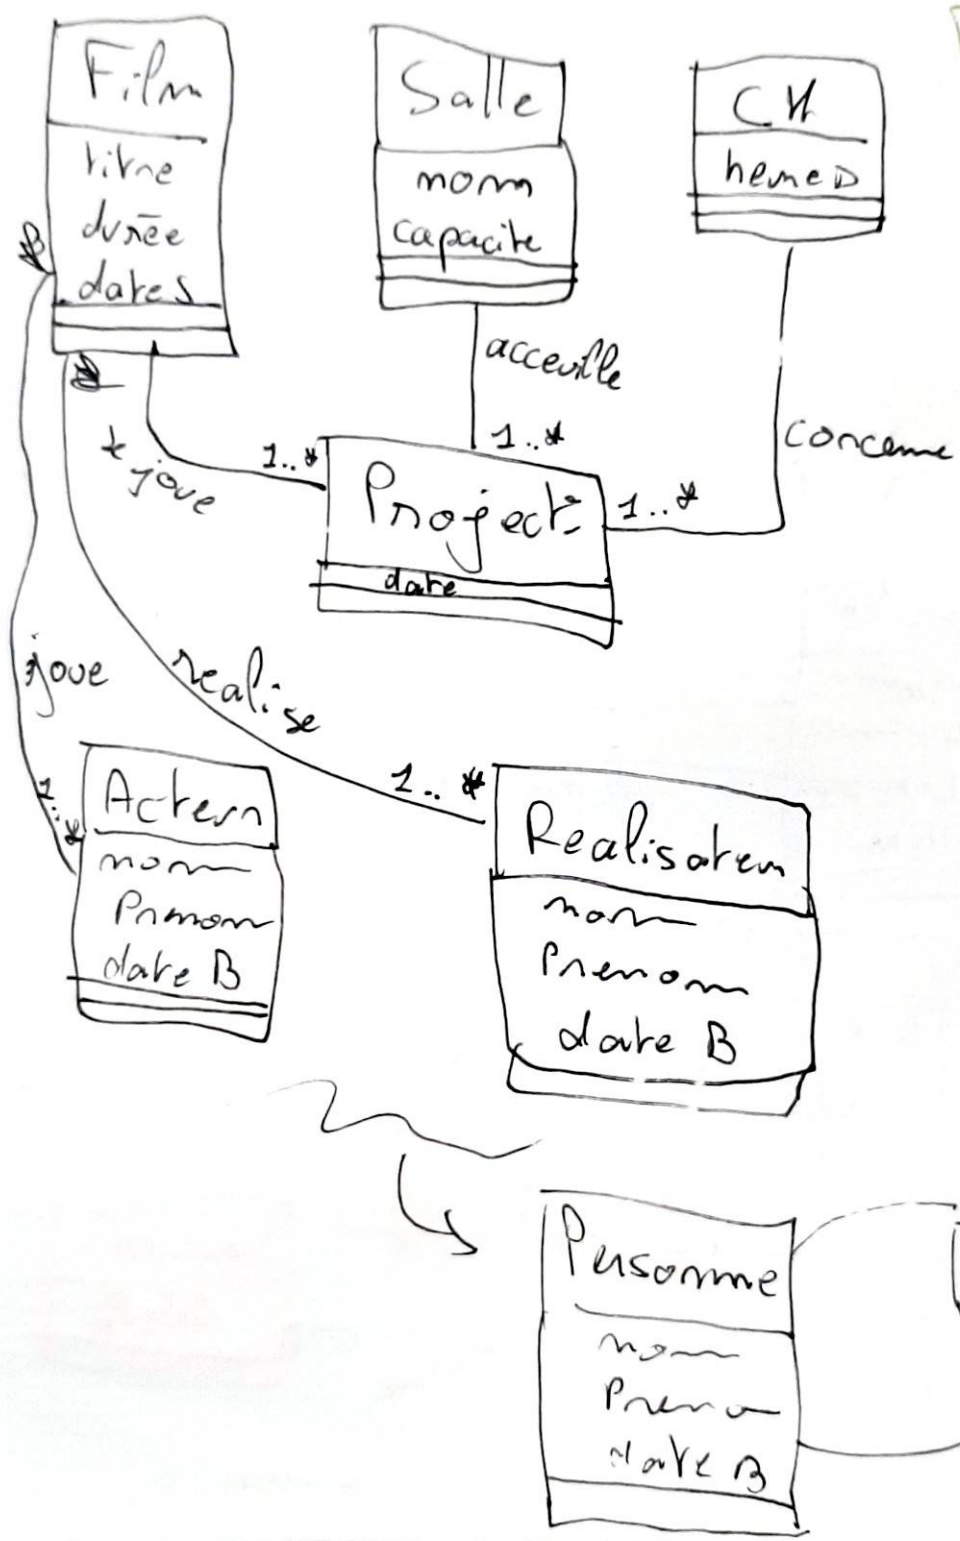 Film
titre
durée
dateS
Salle
nom
capacite
CH
heureD
acceuille
concerne
*
joue
1..*
1..*
1..*
Project
date
joue
realise
1..*
1..*
Acteur
nom
Prenom
date B
Realisateur
nom
Prenom
date B
Personne
nom
date B